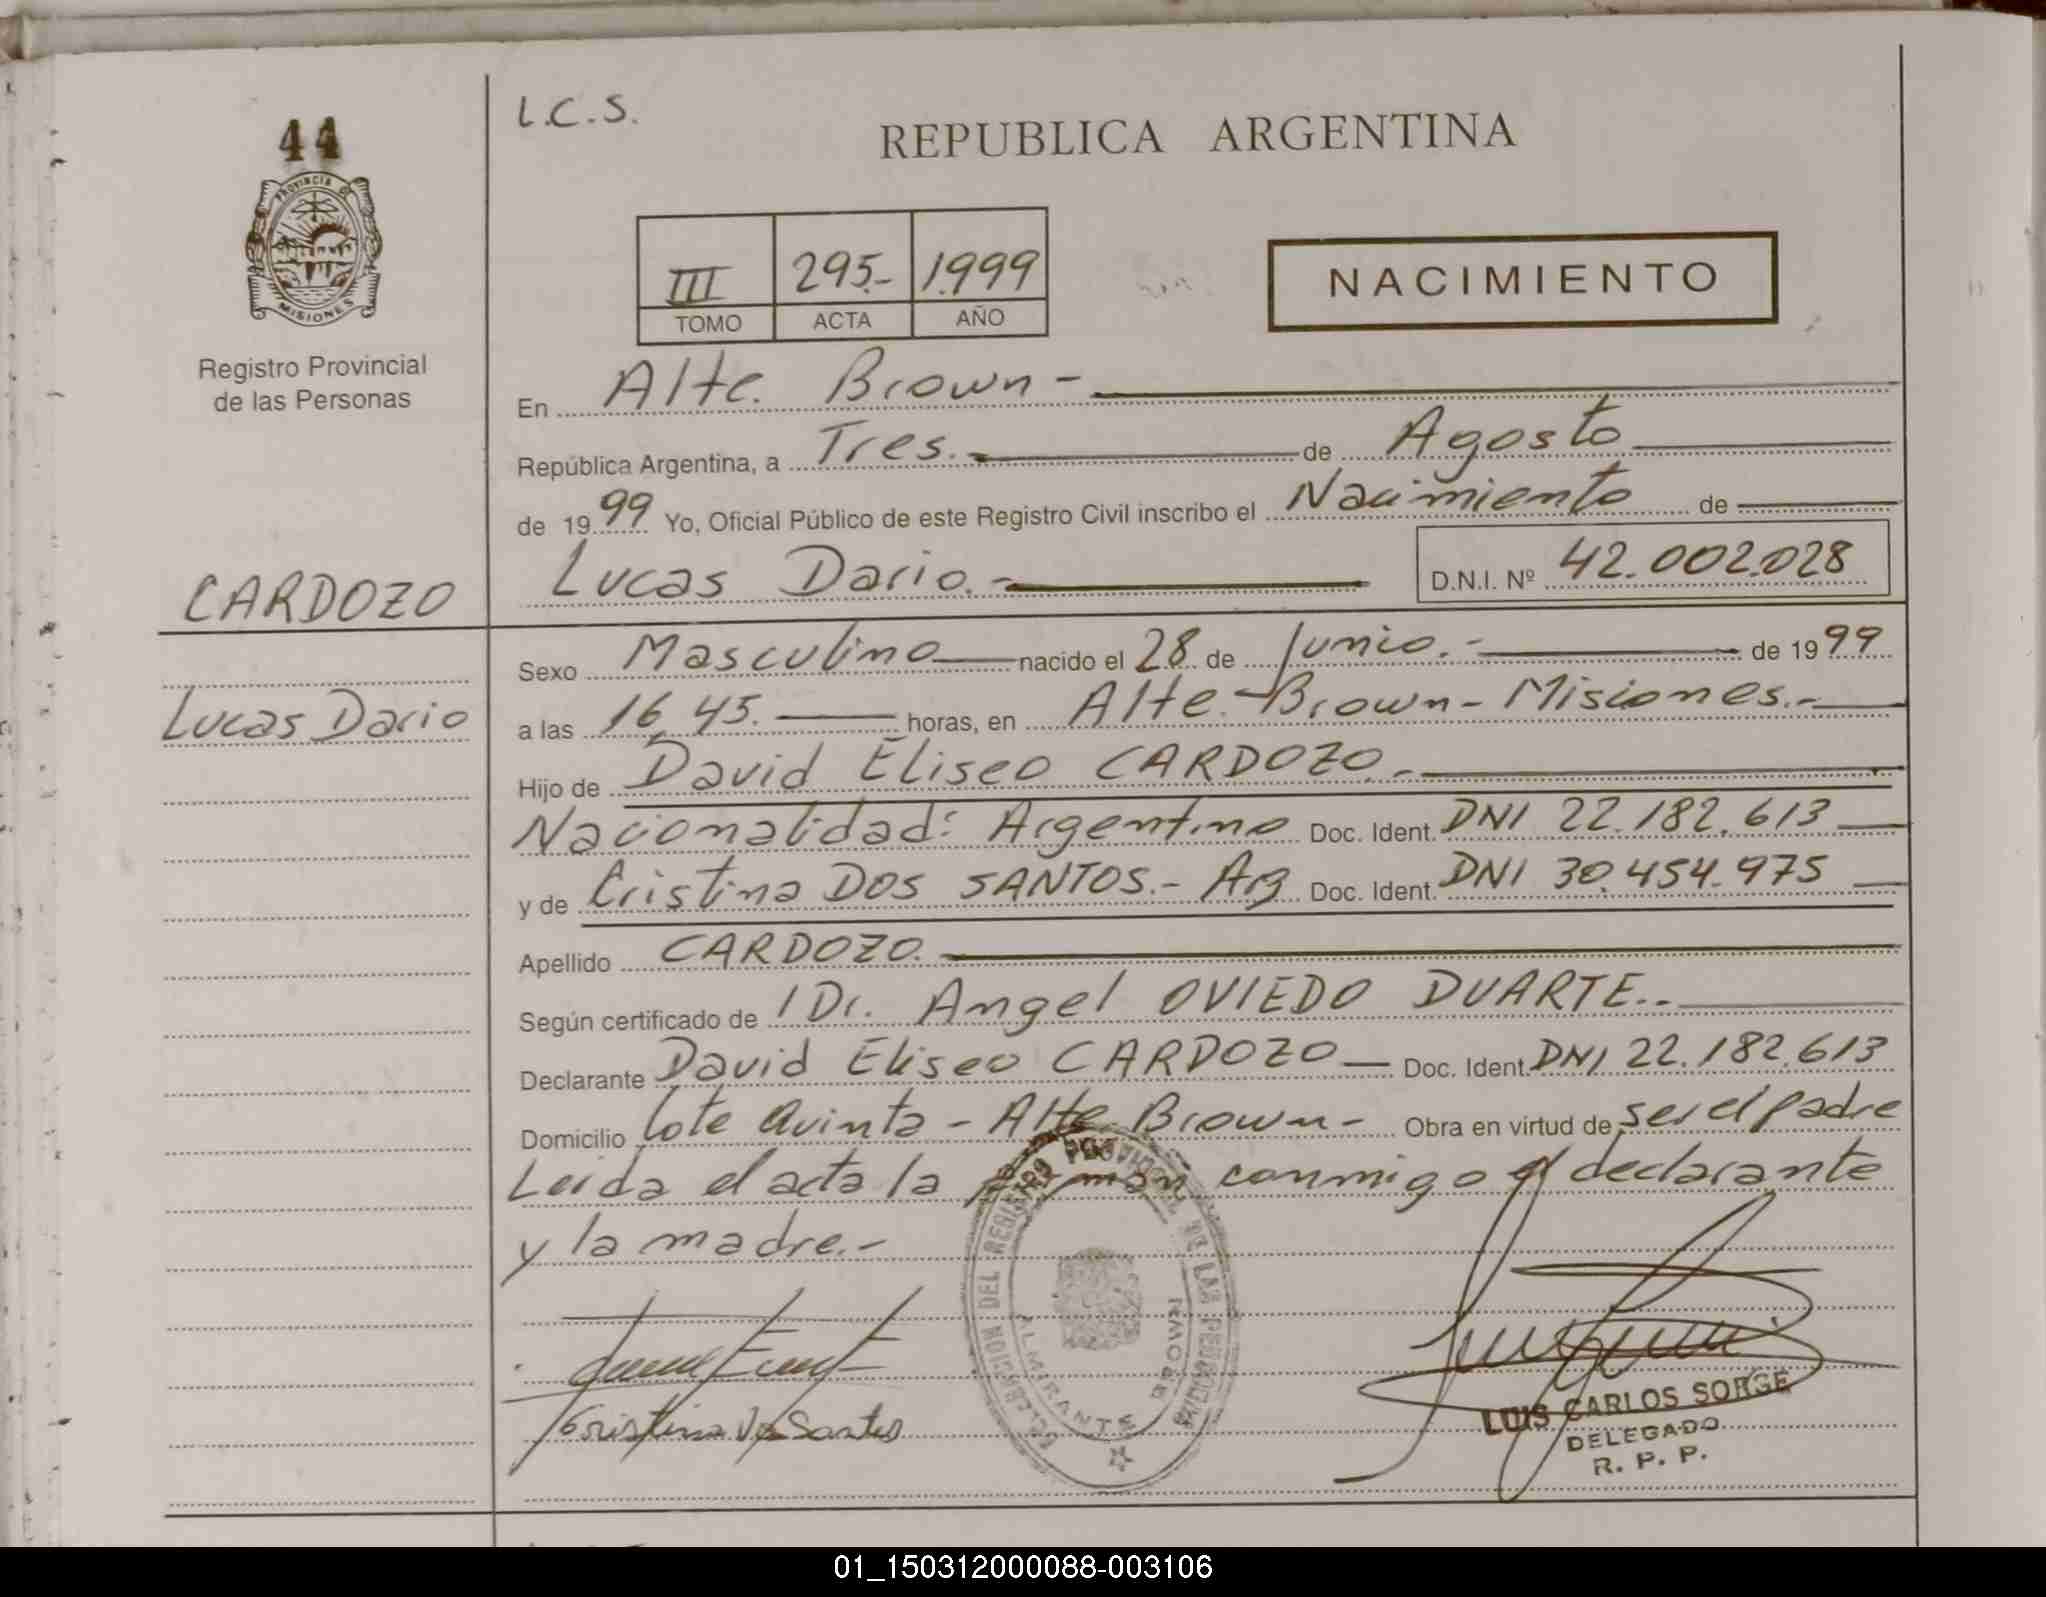 44
PROVINCIA DE
MISIONES
Registro Provincial
de las Personas
CARDOZO
Lucas Dario
L.C.S.
REPUBLICA ARGENTINA
III 295.- 1.999
TOMO ACTA AÑO
NACIMIENTO
En Alte. Brown -
República Argentina, a Tres.- de Agosto
de 1999 Yo, Oficial Público de este Registro Civil inscribo el Nacimiento de
Lucas Dario.- D.N.I. Nº 42.002.028
Sexo Masculino nacido el 28 de Junio.- de 1999
a las 16,45. horas, en Alte.-Brown - Misiones.-
Hijo de David Eliseo CARDOZO.-
Nacionalidad: Argentino Doc. Ident. DNI 22.182.613
y de Cristina DOS SANTOS.- Arg Doc. Ident. DNI 30.454.975
Apellido CARDOZO.
Según certificado de / Dr. Angel OVIEDO DUARTE.-
Declarante David Eliseo CARDOZO Doc. Ident. DNI 22.182.613
Domicilio Lote Quinta - Alte Brown - Obra en virtud de ser el padre
Leida el acta la firman conmigo el declarante
y la madre.-
DELEGACION DEL REGISTRO PROVINCIAL DE LAS PERSONAS
ALMIRANTE
Cristina Dos Santos
LUIS CARLOS SORGE
DELEGADO
R. P. P.
01_150312000088-003106